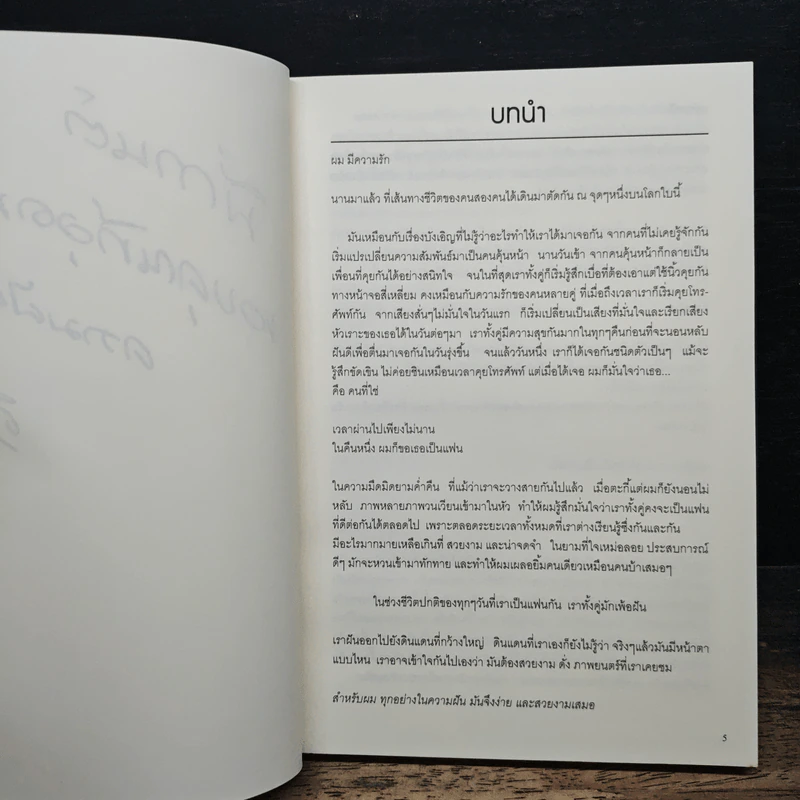 บทนำ
ผม มีความรัก
นานมาแล้ว ที่เส้นทางชีวิตของคนสองคนได้เดินมาตัดกัน ณ จุดๆหนึ่งบนโลกใบนี้
มันเหมือนกับเรื่องบังเอิญที่ไม่รู้ว่าอะไรทำให้เราได้มาเจอกัน จากคนที่ไม่เคยรู้จักกัน
เริ่มแปรเปลี่ยนความสัมพันธ์มาเป็นคนคุ้นหน้า นานวันเข้า จากคนคุ้นหน้าก็กลายเป็น
เพื่อนที่คุยกันได้อย่างสนิทใจ จนในที่สุดเราทั้งคู่ก็เริ่มรู้สึกเบื่อที่ต้องเอาแต่ใช้นิ้วคุยกัน
ทางหน้าจอสี่เหลี่ยม คงเหมือนกับความรักของคนหลายคู่ ที่เมื่อถึงเวลาเราก็เริ่มคุยโทร-
ศัพท์กัน จากเสียงสั่นๆไม่มั่นใจในวันแรก ก็เริ่มเปลี่ยนเป็นเสียงที่มั่นใจและเรียกเสียง
หัวเราะของเธอได้ในวันต่อๆมา เราทั้งคู่มีความสุขกันมากในทุกๆคืนก่อนที่จะนอนหลับ
ฝันดีเพื่อตื่นมาเจอกันในวันรุ่งขึ้น จนแล้ววันหนึ่ง เราก็ได้เจอกันชนิดตัวเป็นๆ แม้จะ
รู้สึกขัดเขิน ไม่ค่อยชินเหมือนเวลาคุยโทรศัพท์ แต่เมื่อได้เจอ ผมก็มั่นใจว่าเธอ...
คือ คนที่ใช่
เวลาผ่านไปเพียงไม่นาน
ในคืนหนึ่ง ผมก็ขอเธอเป็นแฟน
ในความมืดมิดยามค่ำคืน ที่แม้ว่าเราจะวางสายกันไปแล้ว เมื่อตะกี้แต่ผมก็ยังนอนไม่
หลับ ภาพหลายภาพวนเวียนเข้ามาในหัว ทำให้ผมรู้สึกมั่นใจว่าเราทั้งคู่คงจะเป็นแฟน
ที่ดีต่อกันได้ตลอดไป เพราะตลอดระยะเวลาทั้งหมดที่เราต่างเรียนรู้ซึ่งกันและกัน
มีอะไรมากมายเหลือเกินที่ สวยงาม และน่าจดจำ ในยามที่ใจเหม่อลอย ประสบการณ์
ดีๆ มักจะหวนเข้ามาทักทาย และทำให้ผมเผลอยิ้มคนเดียวเหมือนคนบ้าเสมอๆ
ในช่วงชีวิตปกติของทุกๆวันที่เราเป็นแฟนกัน เราทั้งคู่มักเพ้อฝัน
เราฝันออกไปยังดินแดนที่กว้างใหญ่ ดินแดนที่เราเองก็ยังไม่รู้ว่า จริงๆแล้วมันมีหน้าตา
แบบไหน เราอาจเข้าใจกันไปเองว่า มันต้องสวยงาม ดั่ง ภาพยนตร์ที่เราเคยชม
สำหรับผม ทุกอย่างในความฝัน มันจึงง่าย และสวยงามเสมอ
5